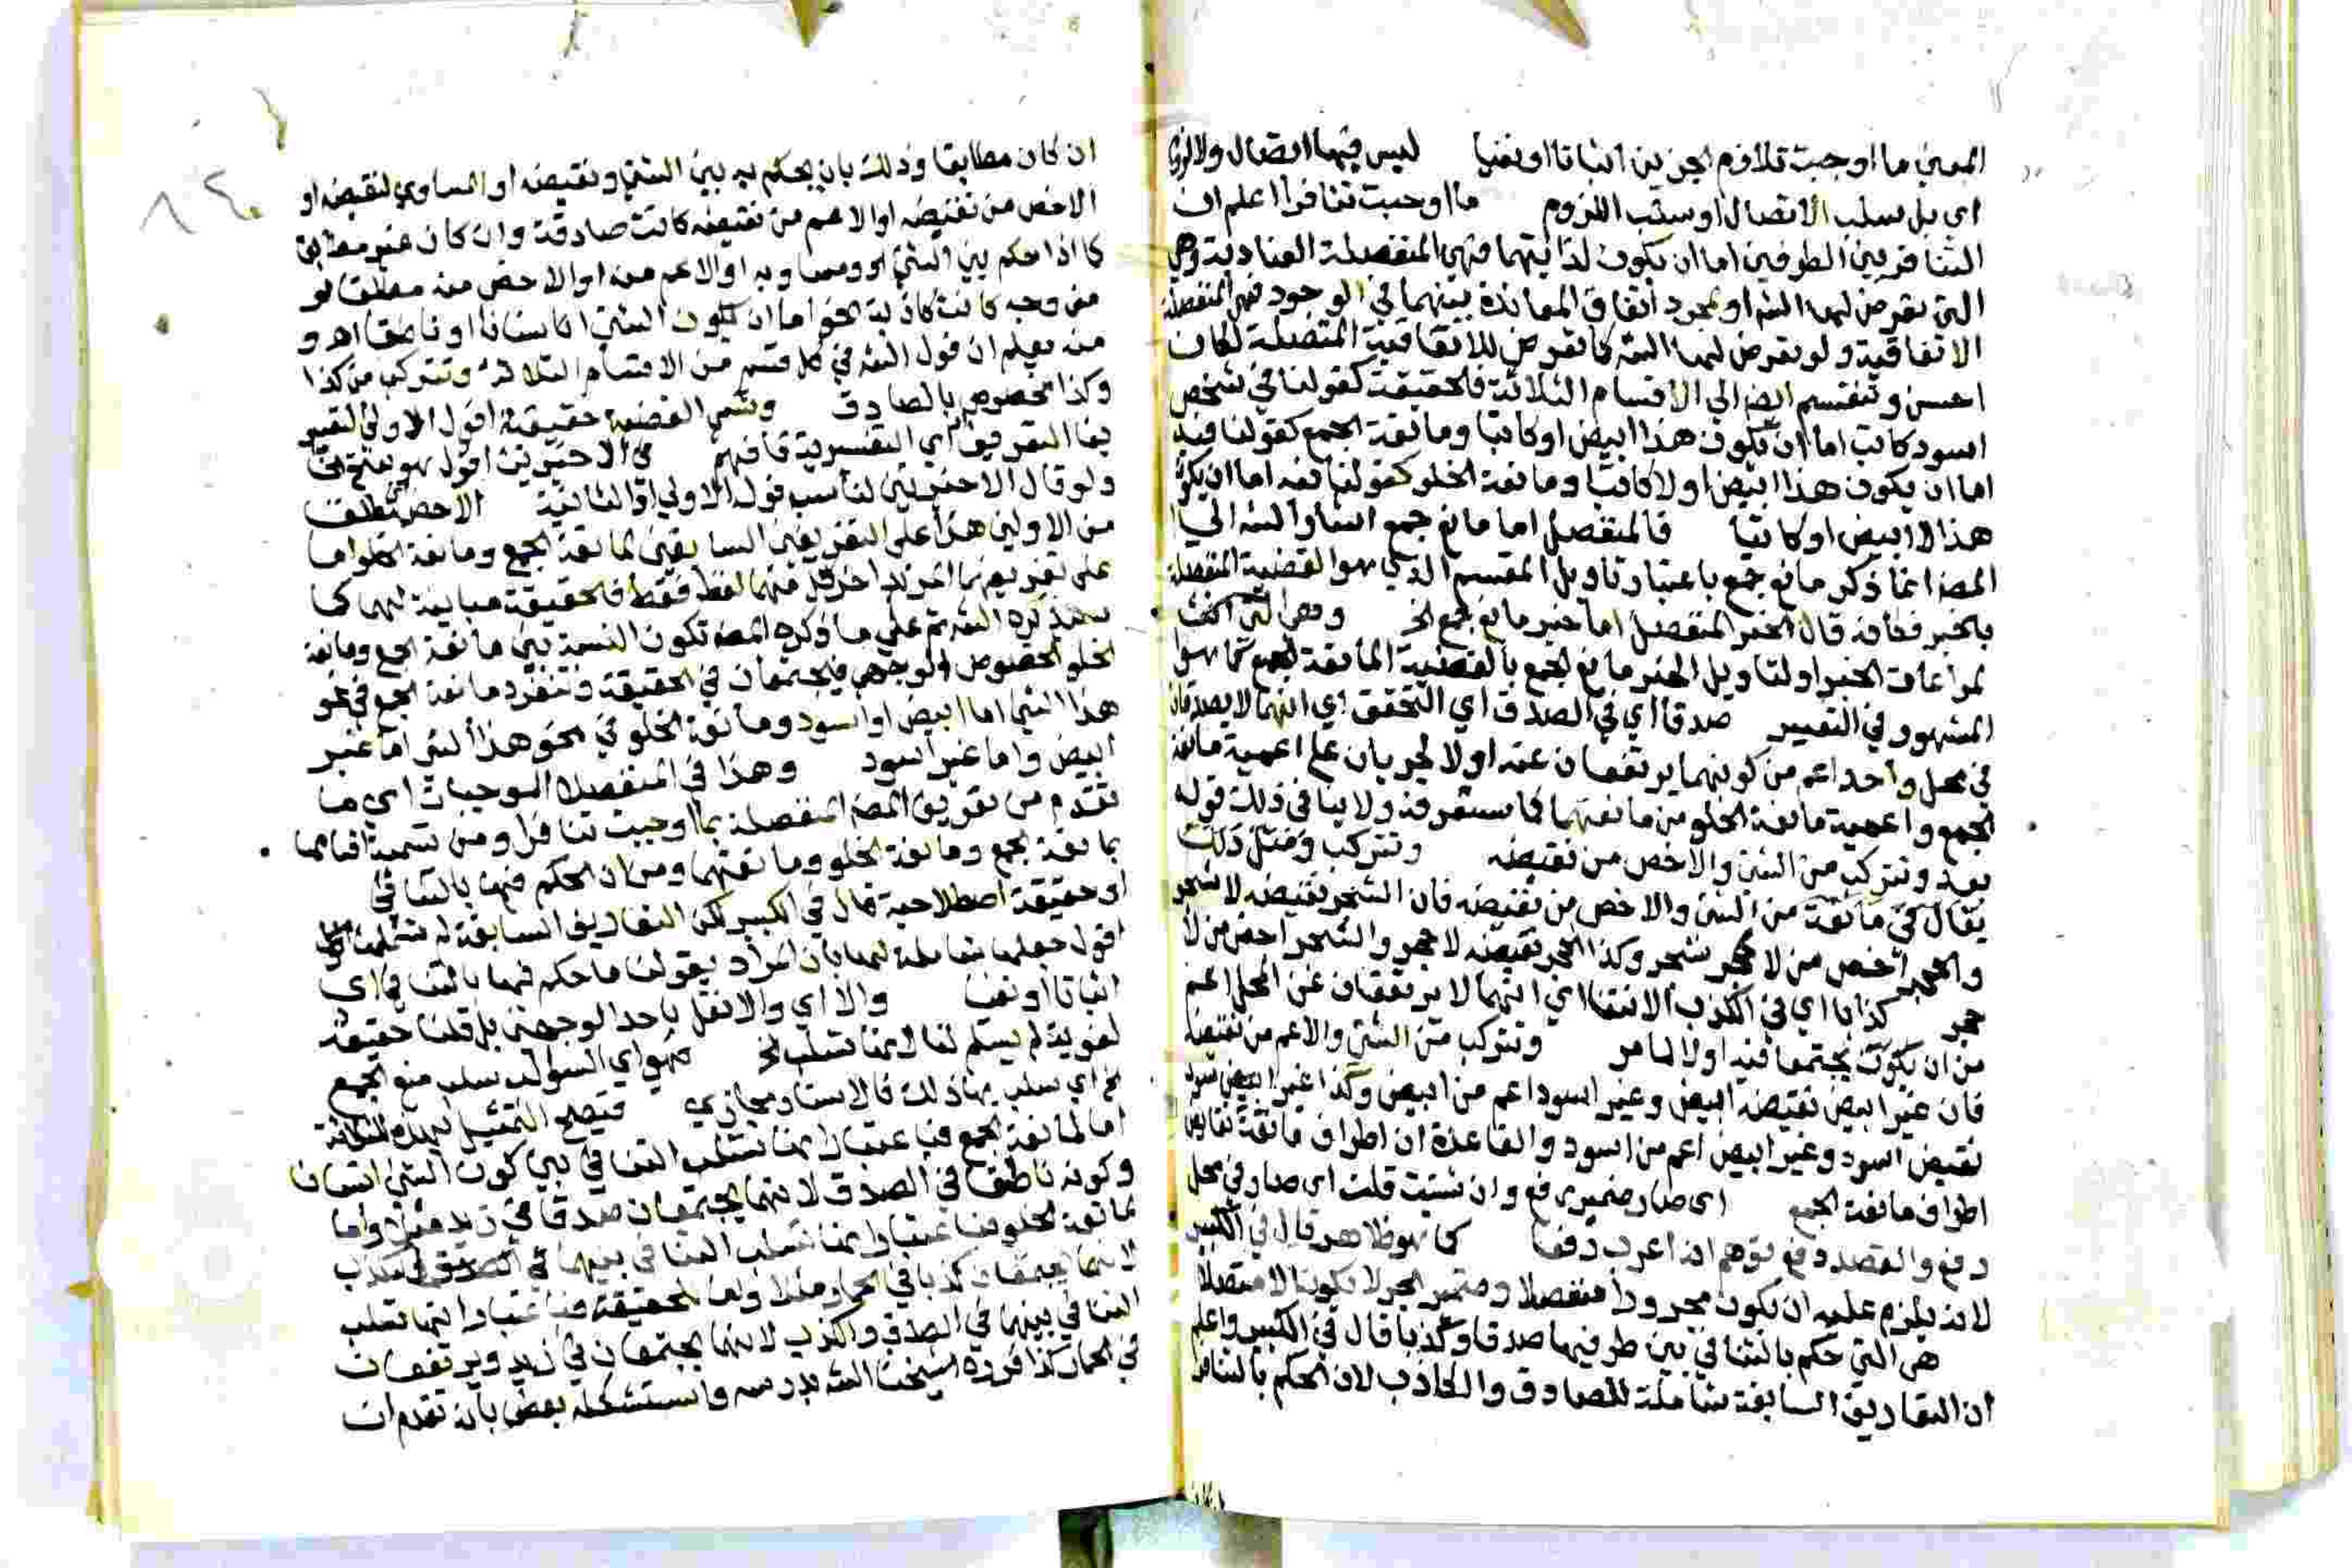 المعني ما اوجبت تلازم الجزئين اثباتا او نفيا ليس فيها اتصال ولا لزوم
اي بل سلب الاتصال او سلب اللزوم ما اوجبت تنافرا اعلم ان
التنافر بين الطرفين اما ان يكون لذاتيهما فهي المنفصلة العنادية وهي
التي تعرض لها الشه او لمجرد اتفاق المعاندة بينهما في الوجود فهي المنفصلة
الاتفاقية ولو تعرض لها الشه كما تعرض للاتفاقية المتصلة لكان
احسن وتنقسم ايضا الي الاقسام الثلاثة فالحقيقة كقولنا في شخص
اسود كاتب اما ان يكون هذا ابيض او كاتبا ومانعة الجمع كقولنا فيه
اما ان يكون هذا ابيض او لا كاتبا ومانعة الخلو كقولنا فيه اما ان يكون
هذا لا ابيض او كاتبا فالمنفصل اما مانع جمع اشار الشه الي ان
المصر انما ذكر مانع جمع باعتبار تاويل المقسم الذي هو القضية المنفصلة
بالخبر فكأنه قال الخبر المنفصل اما خبر مانع جمع الخ وهي التي اكتف
لمراعات الخبر او لتاويل الخبر مانع الجمع بالقضية المانعة للجمع كما هو
المشهور في التعبير صدقا اي في الصدق اي التحقق اي انهما لا يصدقان
في محل واحد اعم من كونهما يرتفعان عنه او لا لجريان علي اعمية مانعة
الجمع واعمية مانعة الخلو من مانعتهما كما ستعرفه ولا ينافي ذلك قوله
بعد وتتركب من الشئ والاخص من نقيضه وتتركب ومثل ذلك
يقال في مانعة من الشئ والاخص من نقيضه فان الشجر نقيضه لا شجر
والحجر اخص من لا شجر وكذا الحجر نقيضه لا حجر والشجر اخص من لا
حجر كذبا اي في الكذب الانتفا اي انهما لا يرتفعان عن المحل اعم
من ان يكون يجتمعا فيه او لا لما مر وتتركب من الشئ والاعم من نقيضه
فان غير ابيض نقيضه ابيض وغير اسود اعم من ابيض وكذا غير ابيض اسود
نقيض اسود وغير ابيض اعم من اسود والقاعدة ان اطراف مانعة نقايض
اطراف مانعة الجمع اي صار ضميري رفع وان شئت قلت اي صار في محل
رفع والقصد دفع توهم انه اعرب رفعا كما هو ظاهر قال في الكبير
لانه يلزم عليه ان يكون مجرورا منفصلا وضمير الجر لا يكون الا متصلا
هي التي حكم بالتنافي بين طرفيها صدقا وكذبا قال في الكبير واعلم
ان التعاريف السابقة شاملة للصادق والكاذب لان الحكم بالتنافر
ان كان مطابقا وذلك بان يحكم به بين الشئ ونقيضه او المساوي لنقيضه او
الاخص من نقيضه او الاعم من نقيضه كانت صادقة وان كان غير مطابق
كما اذا حكم بين الشئ ومساويه او الاعم منه او الاخص منه مطلقا او
من وجه كانت كاذبة نحو اما ان يكون الشئ انسانا او ناطقا اه و
منه يعلم ان قول الشه في كل قسم من الاقسام الثلاثة وتتركب من كذا
وكذا مخصوص بالصادق وتسمي القضية حقيقية اقول الاولي لتعبير
بفا التفريع اي التفسرية فافهم في الاخيرتين اقول هو بفتح
ولو قال الاخيرتين لناسب قوله الاولي والثانية الاخص مطلقا
من الاولين هذا علي التعريفين السابقين لمانعة الجمع ومانعة الخلو اما
علي تعريفهما المزيد اخر كل منهما لفظ فقط فالحقيقة مباينة لهما كما
سيذكره الشه ثم علي ما ذكره المصه تكون النسبة بين مانعة الجمع ومانعة
الخلو الخصوص الوجهي فيجتمعان في الحقيقة وتنفرد مانعة الجمع في نحو
هذا الشئ اما ابيض او اسود ومانعة الخلو في نحو هذا الشئ اما غير
ابيض واما غير اسود وهذا في المنفصلات الموجبات اي ما
تقدم من تعريف المصه المنفصلة بما اوجبت تنافرا ومن تسمية اقسامها
بمانعة جمع ومانعة الخلو ومانعتهما ومن ان الحكم فيها بالتنافي
او حقيقة اصطلاحية قال في الكبير لكن التعاريف السابقة لم تشملها
اقول جعلها شاملة لهما بان المراد بقولنا ما حكم فيها بالتنافي اي
اثباتا او نفيا والا اي والا نقل باحد الوجهين بل قلنا حقيقة
لغوية لم يسلم لنا لانها تسلب الخ فهو اي السوالب سلب منع الجمع
الخ اي سلب بها ذلك فالاسناد مجازي فيصح التمثيل لهذه الثلاثة
اما لمانعة الجمع فباعتبار انها تسلب التنافي بين كون الشئ انسانا
وكونه ناطقا في الصدق لانهما يجتمعان صدقا في زيد مثلا واما
لمانعة الخلو فباعتبار انها تسلب التنافي بينهما في الكذب
لانهما يجتمعان كذبا في الحمار مثلا واما الحقيقة فباعتبار انها تسلب
التنافي بينهما في الصدق والكذب لانهما يجتمعان في زيد ويرتفعان
في الحمار كذا قرره شيخنا الشه بدرسه واستشكله بعض بانه تقدم ان